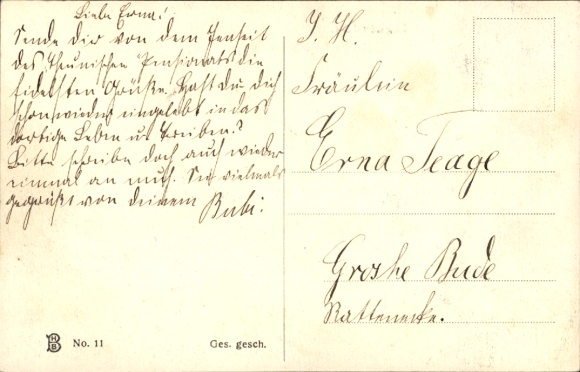 Liebe Erna!
Sende dir von dem Jenseit
des Pensionats die
fidelsten Grüße. Hast du dich
schon wieder eingelebt in das
dortige Leben u. Treiben?
Bitte schreibe doch auch wieder
einmal an mich. Sei vielmals
gegrüßt von deinem Bubi!
J. H.
Fräulein
Erna Teage
Groshe Bude
Rattenecke.
HB
No. 11
Ges. gesch.